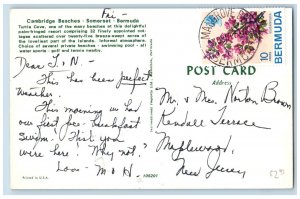 Fri -
Cambridge Beaches - Somerset - Bermuda
Turtle Cove, one of the many beaches at this delightful
palm-fringed resort comprising 32 finely appointed cot-
tages scattered over twenty-five breeze-swept acres in
the loveliest part of the islands. Informal atmosphere.
Choice of several private beaches - swimming pool - all
water sports - golf and tennis nearby.
Dear J, N -
This has been perfect
weather.
This morning we had
our first pre-breakfast
swim! Wish you
were here. Why not?
Love - M & H
Printed in U.S.A.
105201
10
BERMUDA
POST CARD
Address
Mr. & Mrs. Norton Brown
Kendall Terrace
Maplewood,
New Jersey